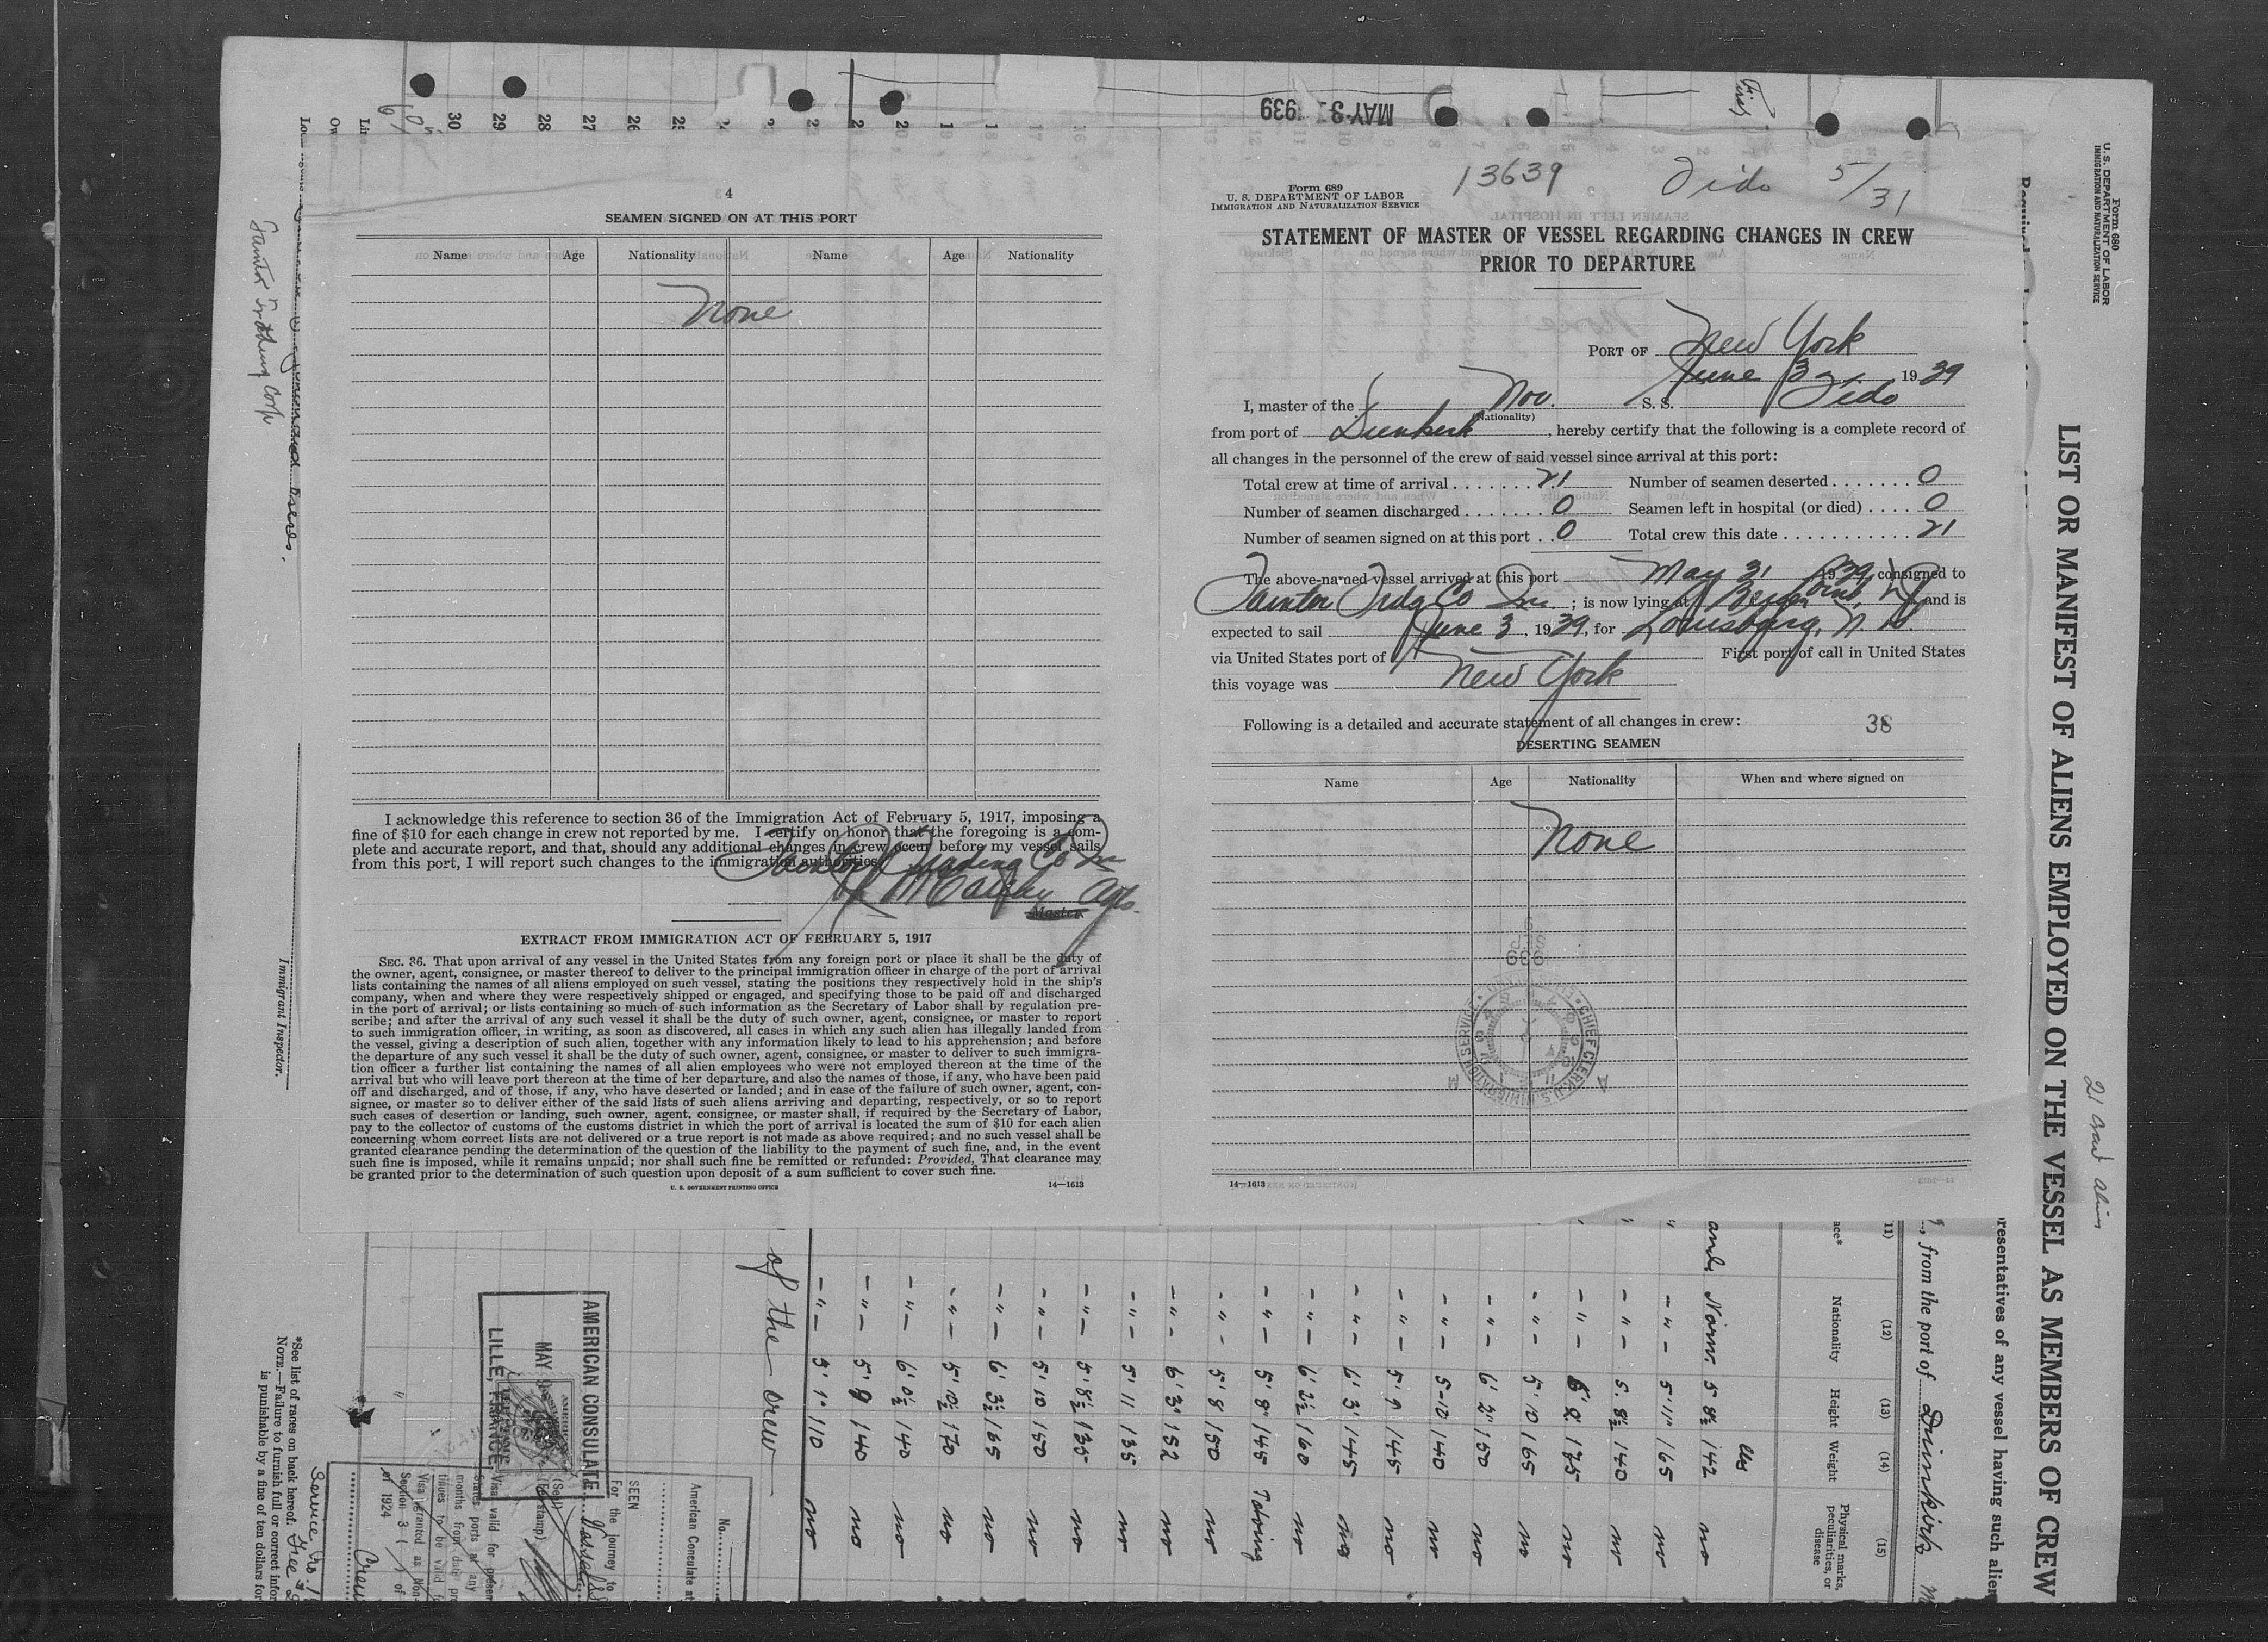 4
SEAMEN SIGNED ON AT THIS PORT
Name Age Nationality Name Age Nationality
None
I acknowledge this reference to section 36 of the Immigration Act of February 5, 1917, imposing a
fine of $10 for each change in crew not reported by me. I certify on honor that the foregoing is a com-
plete and accurate report, and that, should any additional changes in crew occur before my vessel sails
from this port, I will report such changes to the immigration authorities.
Tainton Trading Co Inc
Agts.
Master.
EXTRACT FROM IMMIGRATION ACT OF FEBRUARY 5, 1917
SEC. 36. That upon arrival of any vessel in the United States from any foreign port or place it shall be the duty of
the owner, agent, consignee, or master thereof to deliver to the principal immigration officer in charge of the port of arrival
lists containing the names of all aliens employed on such vessel, stating the positions they respectively hold in the ship's
company, when and where they were respectively shipped or engaged, and specifying those to be paid off and discharged
in the port of arrival; or lists containing so much of such information as the Secretary of Labor shall by regulation pre-
scribe; and after the arrival of any such vessel it shall be the duty of such owner, agent, consignee, or master to report
to such immigration officer, in writing, as soon as discovered, all cases in which any such alien has illegally landed from
the vessel, giving a description of such alien, together with any information likely to lead to his apprehension; and before
the departure of any such vessel it shall be the duty of such owner, agent, consignee, or master to deliver to such immigra-
tion officer a further list containing the names of all alien employees who were not employed thereon at the time of the
arrival but who will leave port thereon at the time of her departure, and also the names of those, if any, who have been paid
off and discharged, and of those, if any, who have deserted or landed; and in case of the failure of such owner, agent, con-
signee, or master so to deliver either of the said lists of such aliens arriving and departing, respectively, or so to report
such cases of desertion or landing, such owner, agent, consignee, or master shall, if required by the Secretary of Labor,
pay to the collector of customs of the customs district in which the port of arrival is located the sum of $10 for each alien
concerning whom correct lists are not delivered or a true report is not made as above required; and no such vessel shall be
granted clearance pending the determination of the question of the liability to the payment of such fine, and, in the event
such fine is imposed, while it remains unpaid; nor shall such fine be remitted or refunded: Provided, That clearance may
be granted prior to the determination of such question upon deposit of a sum sufficient to cover such fine.
U. S. GOVERNMENT PRINTING OFFICE 14—1613
MAY 31 1939
13639 Fido 5/31
Form 689
U. S. DEPARTMENT OF LABOR
IMMIGRATION AND NATURALIZATION SERVICE
STATEMENT OF MASTER OF VESSEL REGARDING CHANGES IN CREW
PRIOR TO DEPARTURE
PORT OF New York
June 3 1939
I, master of the Nor. S. S. Fido
(Nationality)
from port of Dunkerk, hereby certify that the following is a complete record of
all changes in the personnel of the crew of said vessel since arrival at this port:
Total crew at time of arrival 21 Number of seamen deserted 0
Number of seamen discharged 0 Seamen left in hospital (or died) 0
Number of seamen signed on at this port 0 Total crew this date 21
The above-named vessel arrived at this port May 31 1939, consigned to
Tainton Trdg Co Inc; is now lying at Point, NJ and is
expected to sail June 3, 1939, for Louisburg, N. S.
via United States port of First port of call in United States
this voyage was New York
Following is a detailed and accurate statement of all changes in crew: 38
DESERTING SEAMEN
Name Age Nationality When and where signed on
None
14—1613
Form 680
U. S. DEPARTMENT OF LABOR
IMMIGRATION AND NATURALIZATION SERVICE
LIST OR MANIFEST OF ALIENS EMPLOYED ON THE VESSEL AS MEMBERS OF CREW
presentatives of any vessel having such alien
, from the port of Dunkirk
(12) (13) (14) (15)
Nationality Height Weight Physical marks, peculiarities, or disease
Norw. 5 8½ 142 no
-"- 5' 11" 165 no
-"- 5. 8½ 140 no
-"- 175 no
-"- 5' 10 165 no
-"- 6' 2" 150 no
-"- 5-10 140 no
-"- 5' 9 145 no
-"- 6' 3" 145 no
-"- 6' 2½ 160 no
-"- 5' 8" 145
-"- 5' 8 150 no
-"- 6' 3" 152 no
-"- 5' 11 135 no
-"- 5' 8½ 135 no
-"- 5' 10 150 no
-"- 6' 3½ 165 no
-"- 5' 10½ 170 no
-"- 6' 0½ 140 no
-"- 5' 9 140 no
-"- 110 no
of the crew
AMERICAN CONSULATE
MAY
LILLE, FRANCE
No.
American Consulate at
SEEN
For the journey to
(Seal)
Immigrant Inspector.
*See list of races on back hereof.
NOTE.—Failure to furnish full or correct infor
is punishable by a fine of ten dollars for